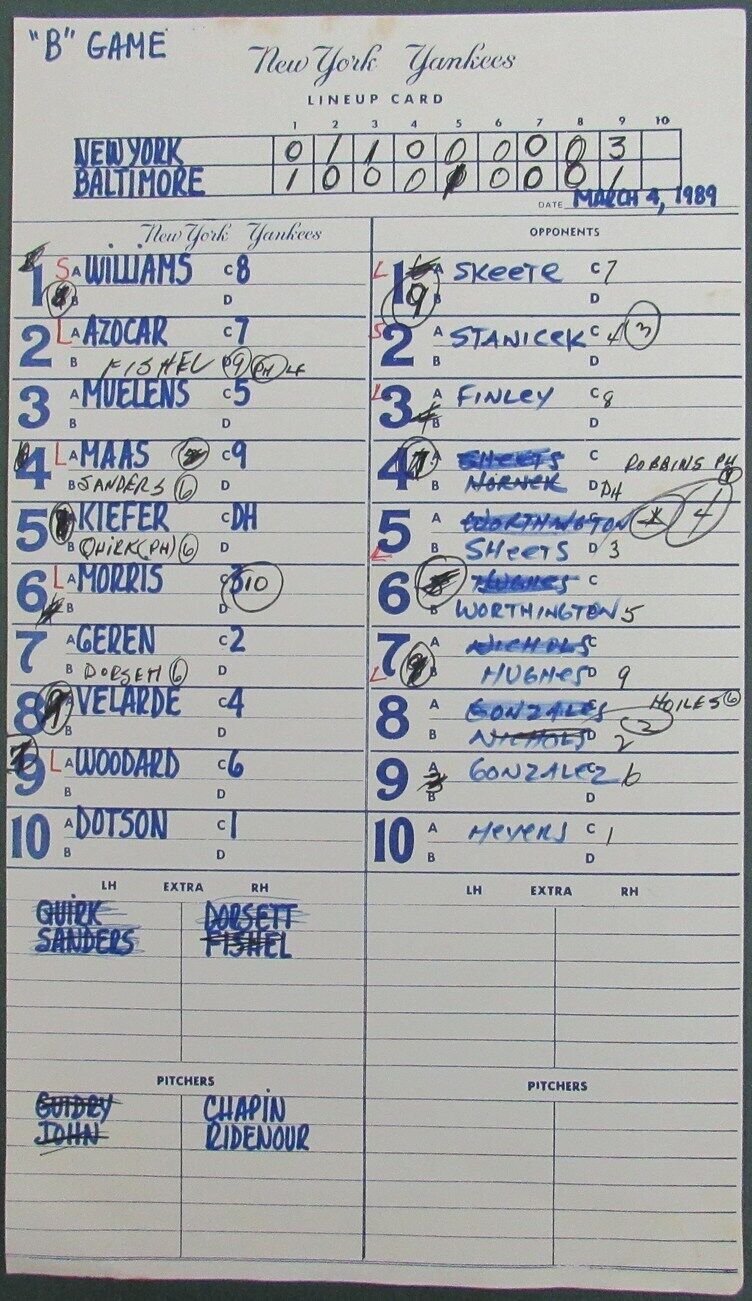 "B" GAME
New York Yankees
LINEUP CARD
1 2 3 4 5 6 7 8 9 10
NEW YORK 0 1 1 0 0 0 0 0 3
BALTIMORE 1 0 0 0 0 0 0 1
DATE MARCH 4, 1989
New York Yankees
1 S A WILLIAMS C 8
B D
2 L A AZOCAR C 7
B FISHEL D 9 PH LF
3 A MUELENS C 5
B D
4 L A MAAS C 9
B SANDERS 6 D
5 A KIEFER C DH
B QUIRK (PH) 6 D
6 L A MORRIS C 3 10
B D
7 A GEREN C 2
B DORSETT 6 D
8 A VELARDE C 4
B D
9 L A WOODARD C 6
B D
10 A DOTSON C 1
B D
LH EXTRA RH
QUIRK DORSETT
SANDERS FISHEL
PITCHERS
GUIDRY CHAPIN
JOHN RIDENOUR
OPPONENTS
L 1 A SKEETE C 7
9 B D
S 2 A STANICEK C 4 3
B D
L 3 A FINLEY C 8
B D
4 A SHEETS C ROBBINS PH
B HORNER D DH
5 A WORTHINGTON C 4
L B SHEETS D 3
6 A HUGHES C
B WORTHINGTON 5
7 A NICHOLS C
L B HUGHES D 9
8 A GONZALES C HOILES 6
B NICHOLS D 2
9 A GONZALEZ C 6
B D
10 A MEYERS C 1
B D
LH EXTRA RH
PITCHERS